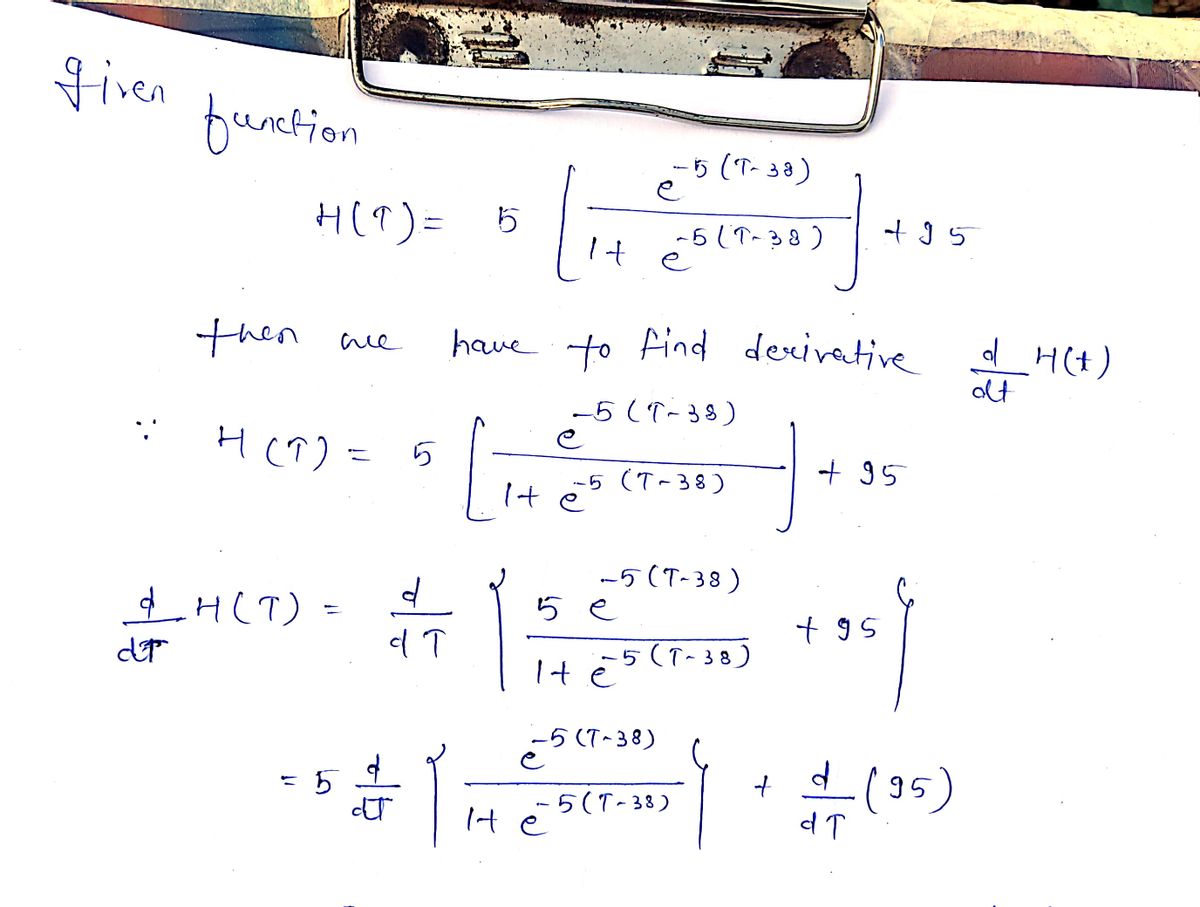 Given function
H(T) = 5 [ e^{-5(T-38)} / 1 + e^{-5(T-38)} ] + 95
then we have to find derivative d/dt H(t)
∵ H(T) = 5 [ e^{-5(T-38)} / 1 + e^{-5(T-38)} ] + 95
d/dT H(T) = d/dT { 5 e^{-5(T-38)} / 1 + e^{-5(T-38)} + 95 }
= 5 d/dT { e^{-5(T-38)} / 1 + e^{-5(T-38)} } + d/dT (95)